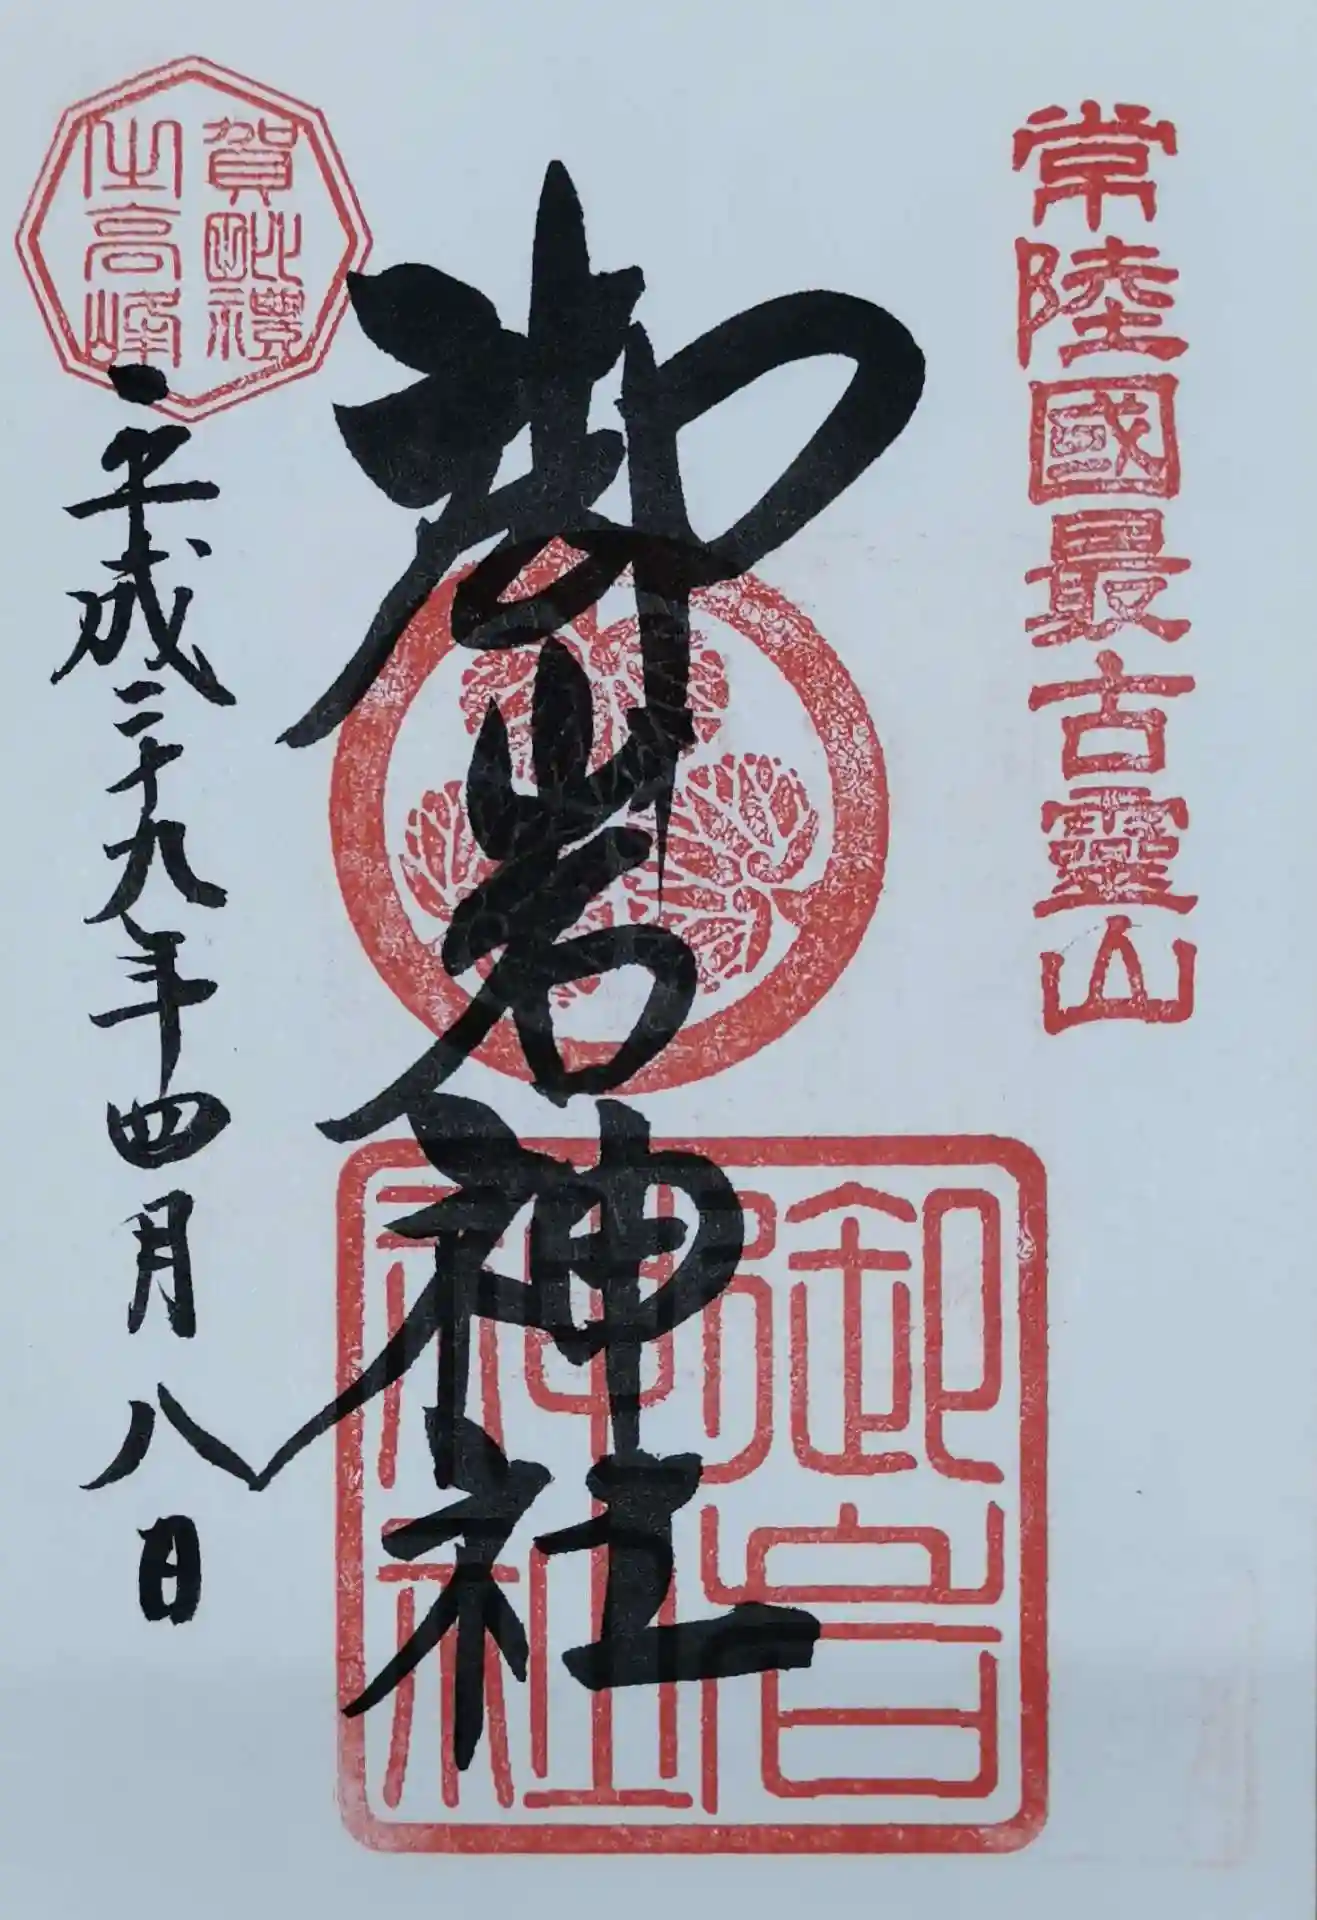 常陸國最古靈山
御岩神社
御岩
神社
賀毗禮
之高峰
平成二十九年四月八日